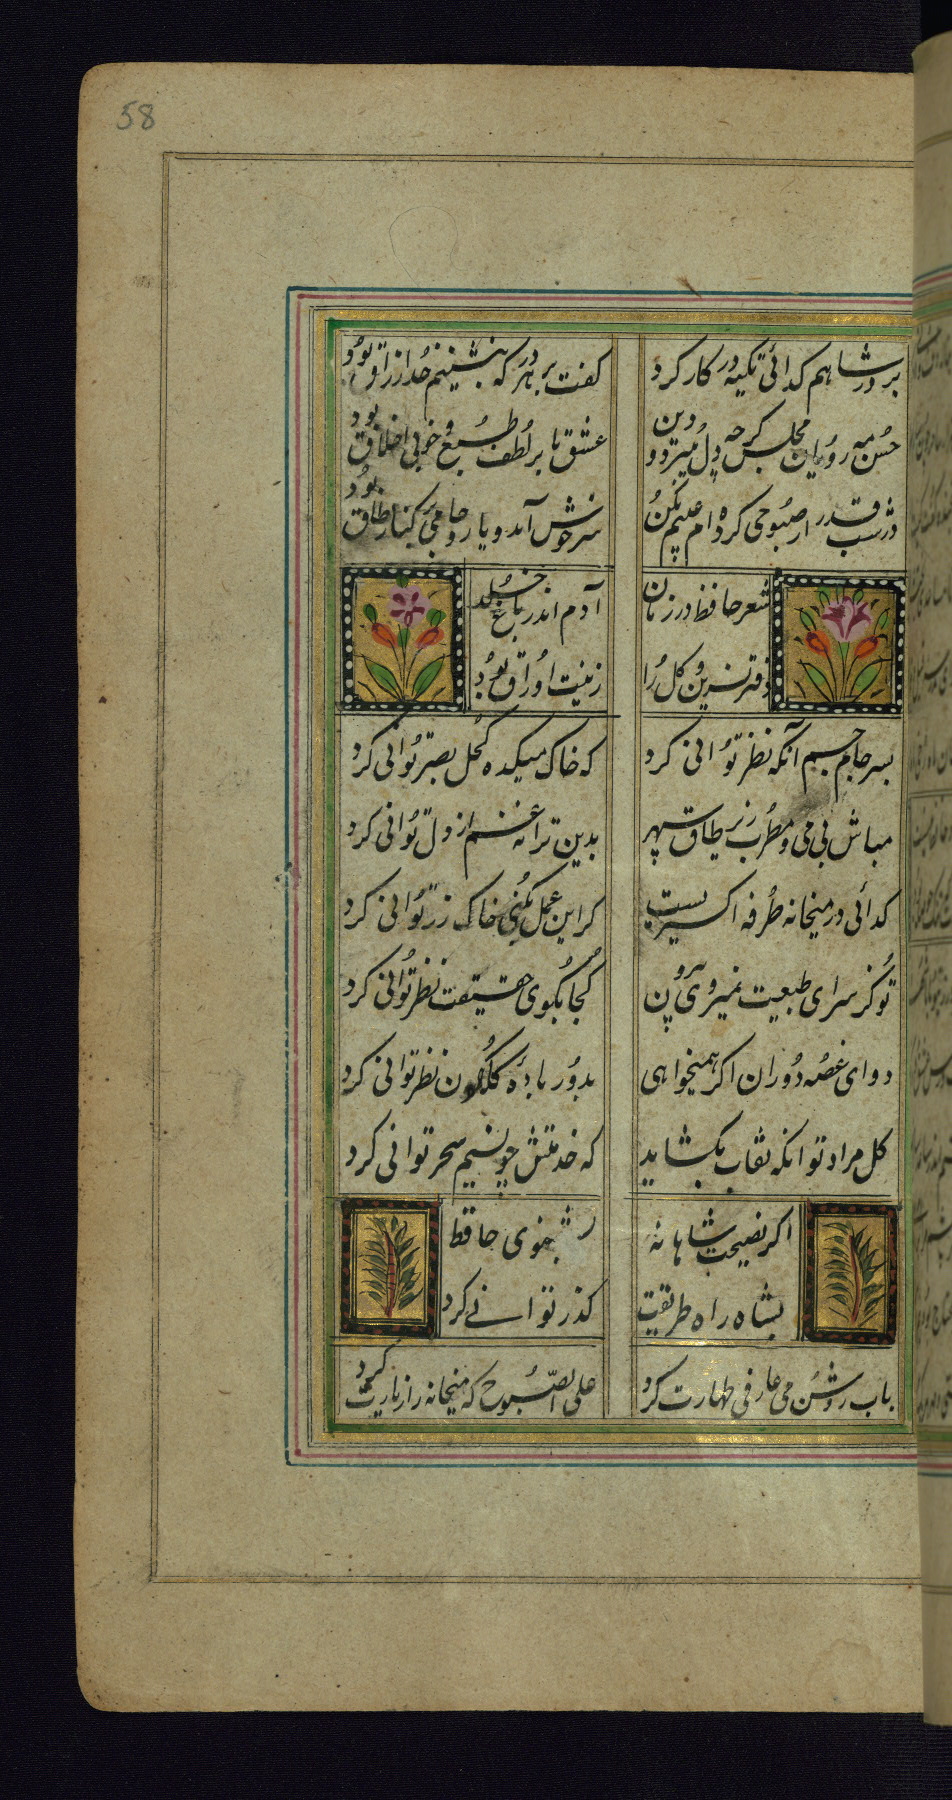 58
بر در شاهم گدائی نکته در کار کرد
گفت بر هر در که بنشینم خدا رزاق بود
حسن مه رویان مجلس گرچه دل میبرد و دین
عشق ما بر لطف طبع و خوبی اخلاق بود
در شب قدر ار صبوحی کرده ام عیبم مکن
سرخوش آمد و یار و جامی بر کنار طاق بود
شعر حافظ در زمان
آدم اندر باغ خلد
دفتر نسرین و گل را
زینت اوراق بود
بسر جام جم آنگه نظر توانی کرد
که خاک میکده کحل بصر توانی کرد
مباش بی می و مطرب زیر طاق سپهر
بدین ترانه غم از دل توانی کرد
گدائی در میخانه طرفه اکسیریست
گر این عمل بکنی خاک زر توانی کرد
تو کز سرای طبیعت نمیروی برون
کجا بکوی حقیقت نظر توانی کرد
دوای غصه دوران اگر همیخواهی
بدور باده گلگون نظر توانی کرد
گل مراد تو آنگه نقاب بگشاید
که خدمتش چو نسیم سحر توانی کرد
اگر نصیحت شاهانه
بشنوی حافظ
بشاه راه طریقت
گذر توانی کرد
بآب روشن می عارفی طهارت کرد
علی الصبوح که میخانه را زیارت کرد